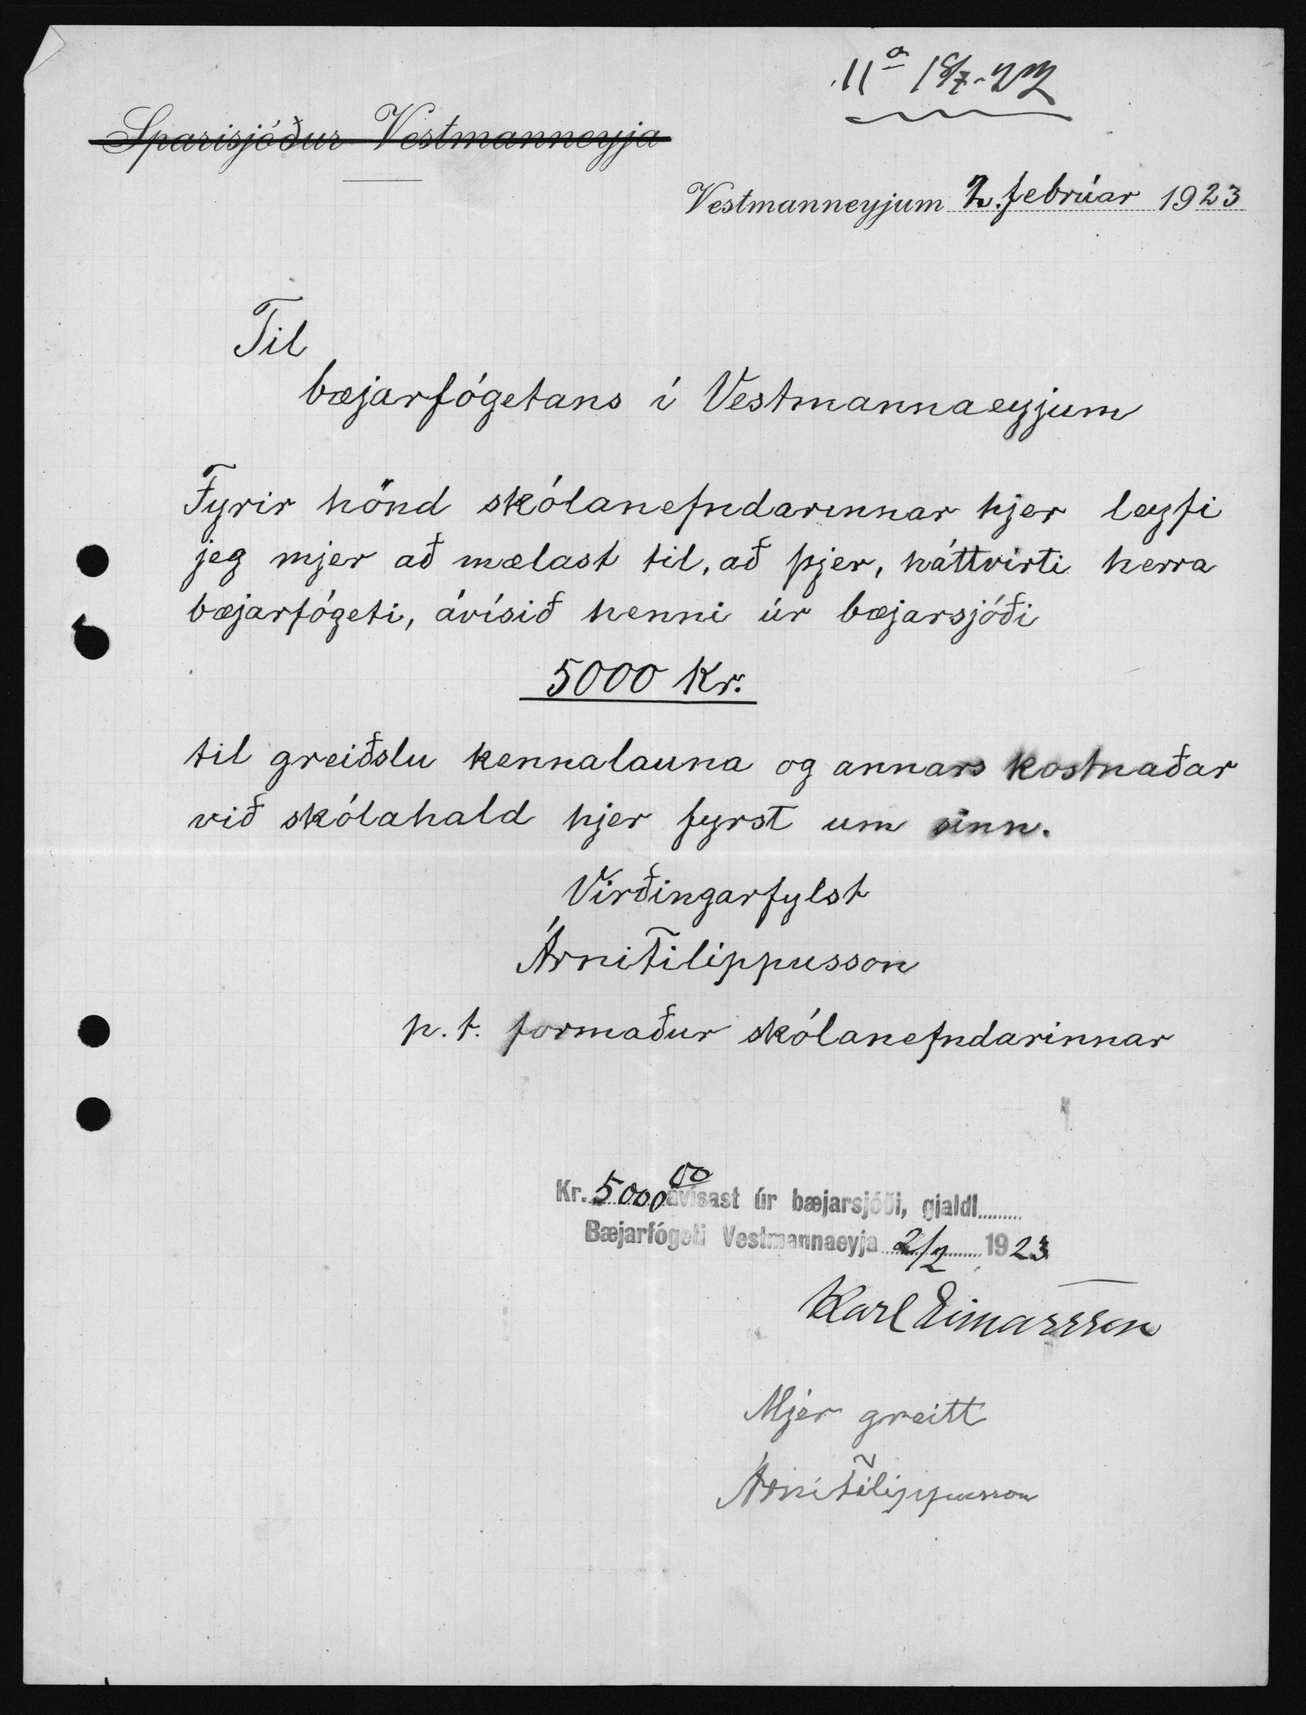 11a
Sparisjóður Vestmanneyja
Vestmanneyjum 2. febrúar 1923
Til
bæjarfógetans í Vestmannaeyjum
Fyrir hönd skólanefndarinnar hjer leyfi
jeg mjer að mælast til, að þjer, háttvirti herra
bæjarfógeti, ávísið henni úr bæjarsjóði
5000 Kr.
til greiðslu kennalauna og annars kostnaðar
við skólahald hjer fyrst um sinn.
Virðingarfylst
Árni Filippusson
p.t. formaður skólanefndarinnar
Kr. 5000 00 ávísast úr bæjarsjóði, gjaldl
Bæjarfógeti Vestmannaeyja 2/2 1923
Karl Einarsson
Mjer greitt
Árni Filippusson